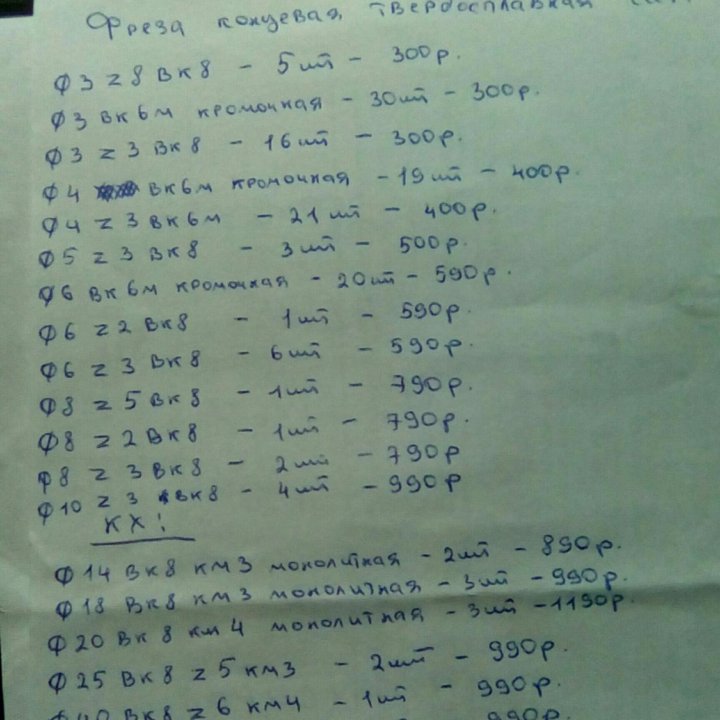 Фреза концевая твердосплавная
Ф3 z8 ВК8 - 5шт - 300р.
Ф3 ВК6м кромочная - 30шт - 300р.
Ф3 z3 ВК8 - 16шт - 300р.
Ф4 ВК6м кромочная - 19шт - 400р.
Ф4 z3 ВК6м - 21шт - 400р.
Ф5 z3 ВК8 - 3шт - 500р.
Ф6 ВК6м кромочная - 20шт - 590р.
Ф6 z2 ВК8 - 1шт - 590р.
Ф6 z3 ВК8 - 6шт - 590р.
Ф8 z5 ВК8 - 1шт - 790р.
Ф8 z2 ВК8 - 1шт - 790р.
Ф8 z3 ВК8 - 2шт - 790р
Ф10 z3 ВК8 - 4шт - 990р
КХ!
Ф14 ВК8 КМ3 монолитная - 2шт - 890р.
Ф18 ВК8 КМ3 монолитная - 3шт - 990р.
Ф20 ВК8 КМ4 монолитная - 3шт - 1190р.
Ф25 ВК8 z5 КМ3 - 2шт - 990р.
Ф40 ВК8 z6 КМ4 - 1шт - 990р.
990р